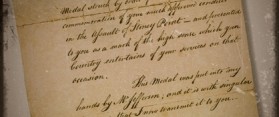 Medal struck by
commemoration of your gallant conduct
in the assault of Stoney Point — and presented
to you as a mark of the high sense which your
Country entertained of your services on that
occasion.
This Medal was put into my
hands by Mr Jefferson, and it is with singular
that I now transmit it to you.